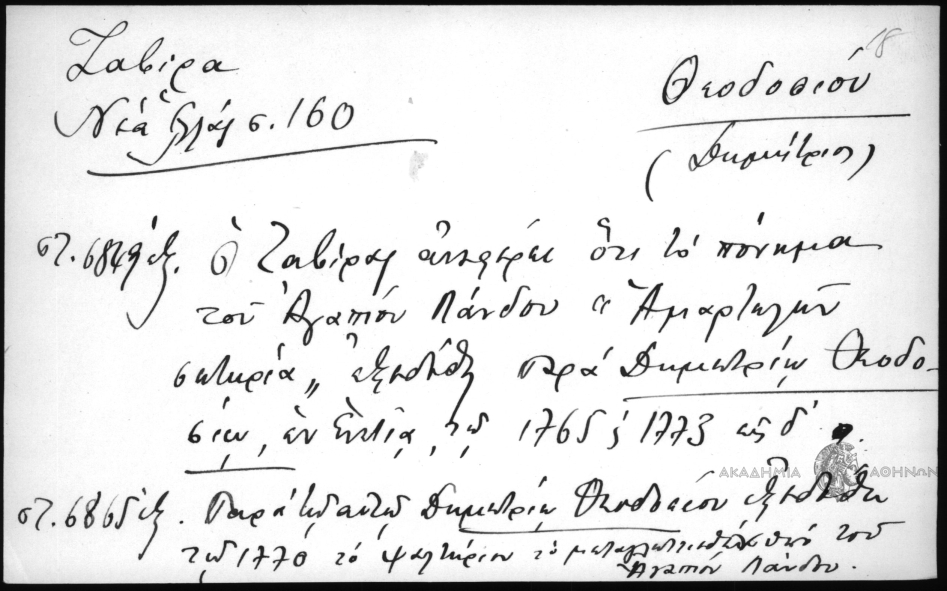 18
Ζαβίρα
Νέα Ἑλλάς σ. 160
Θεοδοσίου
(Δημήτριος)
στ. 6849 ἑξ. Ὁ Ζαβίρας ἀναφέρει ὅτι τὸ πόνημα
τοῦ Ἀγαπίου Λάνδου "Ἁμαρτωλῶν
σωτηρία„ ἐξεδόθη παρὰ Δημητρίῳ Θεοδο-
σίῳ, ἐν Ἐνετίᾳ, τῷ 1765 ἢ 1773 εἰς δ'
ΑΚΑΔΗΜΙΑ ΑΘΗΝΩΝ
στ. 6865 ἑξ. Παρὰ τῷ αὐτῷ Δημητρίῳ Θεοδοσίου ἐξεδόθη
τῷ 1770 τὸ ψαλτήριον τὸ μεταγλωττισθὲν ὑπὸ τοῦ
Ἀγαπίου Λάνδου.